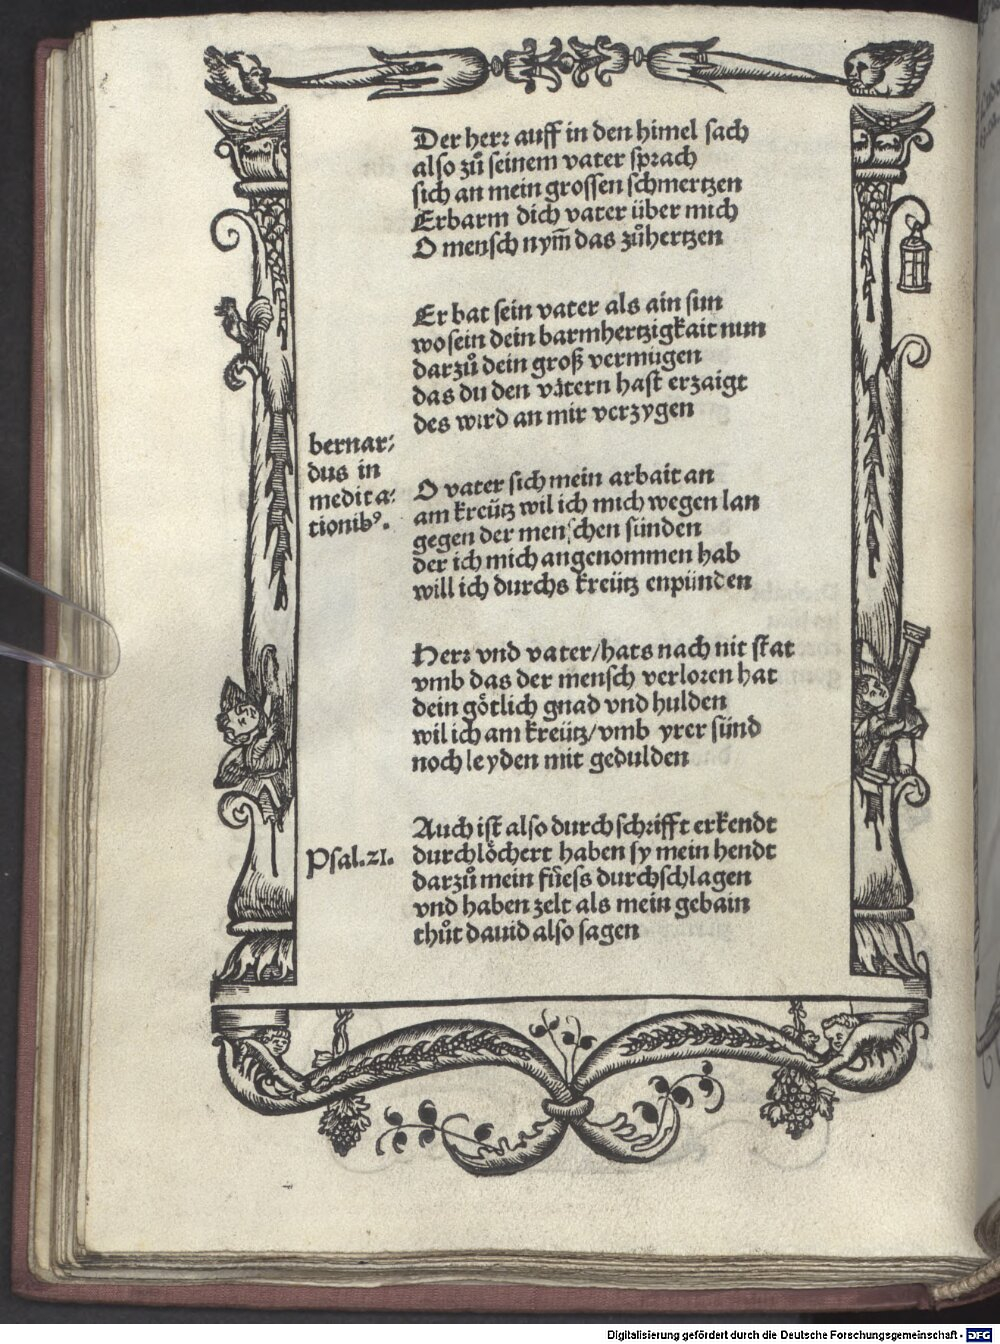 Der herr auff in den himel sach
also zů seinem vater sprach
sich an mein grossen schmertzen
Erbarm dich vater über mich
O mensch nym̃ das zů hertzen
Er bat sein vater als ain sun
wo sein dein barmhertzigkait nun
darzů dein groß vermügen
das du den vätern hast erzaigt
des wird an mir verzygen
bernar⸗
dus in
medita⸗
tionibꝰ.
O vater sich mein arbait an
am kreütz wil ich mich wegen lan
gegen der menschen sünden
der ich mich angenommen hab
will ich durchs kreütz enpünden
Herr vnd vater/hats nach nit stat
vmb das der mensch verloren hat
dein götlich gnad vnd hulden
wil ich am kreütz/vmb yrer sünd
noch leyden mit gedulden
Psal.21.
Auch ist also durch schrifft erkendt
durchlöchert haben sy mein hendt
darzů mein füess durchschlagen
vnd haben zelt als mein gebain
thůt dauid also sagen
Digitalisierung gefördert durch die Deutsche Forschungsgemeinschaft - DFG